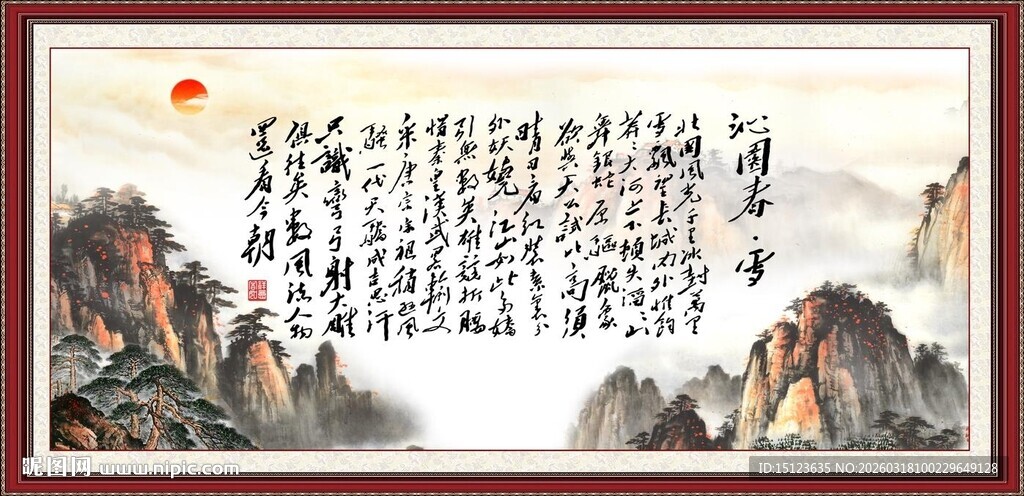 沁園春 雪
北國風光千里冰封萬里
雪飄望长城内外惟餘
莽々大河上下頓失滔々山
舞銀蛇原驅臘象
欲與天公試比高須
晴日看红裝素裹分
外妖嬈江山如此多嬌
引無數英雄競折腰
惜秦皇漢武略輸文
采唐宗宋祖稍遜風
騷一代天驕成吉思汗
只識彎弓射大雕
俱往矣數風流人物
還看今朝
昵图网 www.nipic.com
ID:15123635 NO:20260318100229649128